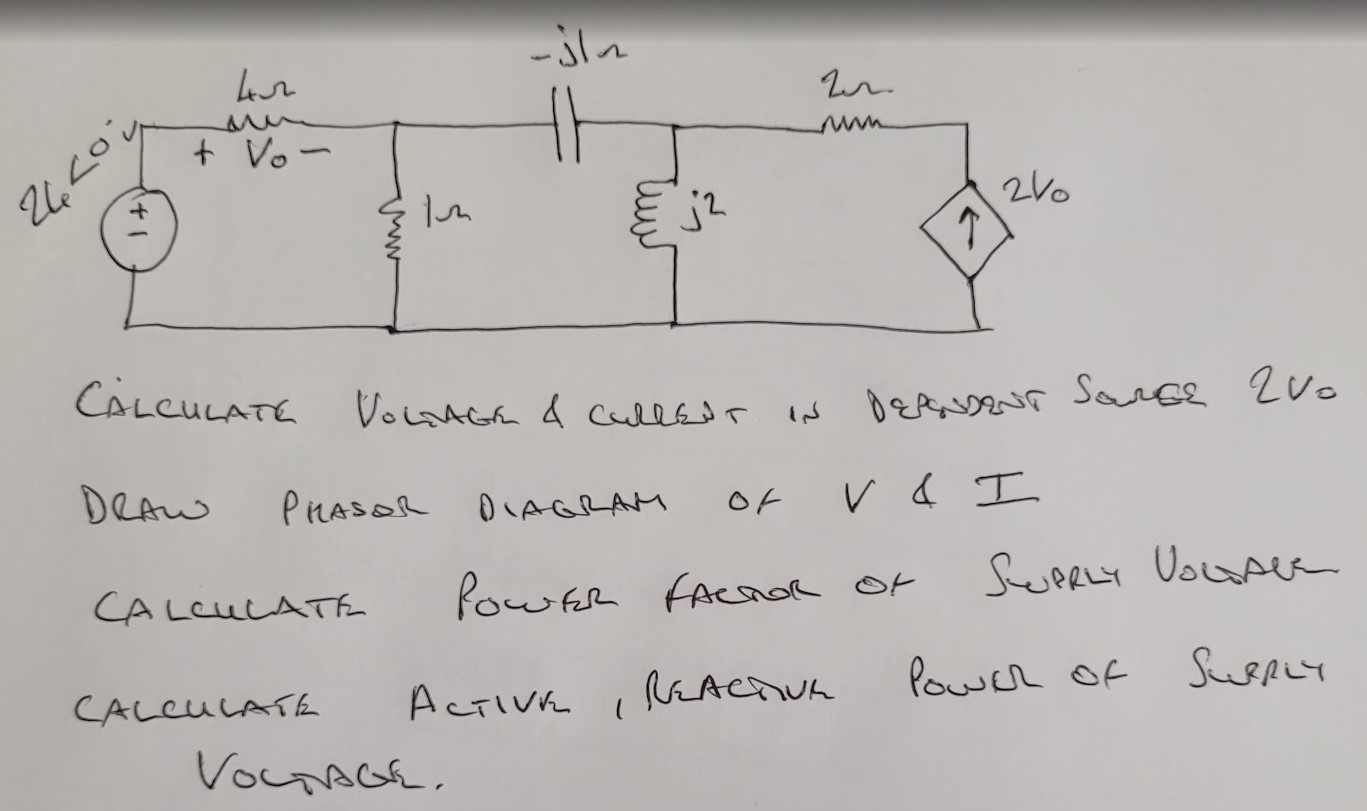 -j1Ω
4Ω
2Ω
+ Vo -
+
-
1Ω
j2
2Vo
CALCULATE VOLTAGE & CURRENT IN DEPENDENT SOURCE 2Vo
DRAW PHASOR DIAGRAM OF V & I
CALCULATE POWER FACTOR OF SUPPLY VOLTAGE
CALCULATE ACTIVE, REACTIVE POWER OF SUPPLY
VOLTAGE.